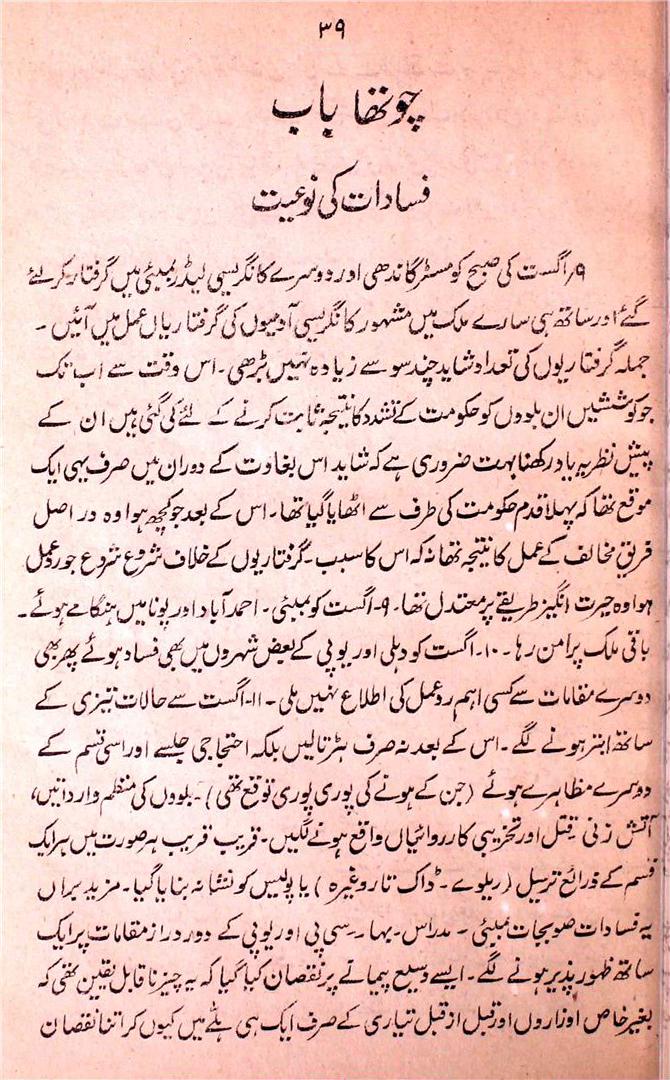 ۳۹
چوتھا باب
فسادات کی نوعیت
۹/اگست کی صبح کو مسٹر گاندھی اور دوسرے کانگریسی لیڈر بمبئی میں گرفتار کر لئے
گئے اور ساتھ ہی سارے ملک میں مشہور کانگریسی آدمیوں کی گرفتاریاں عمل میں آئیں ۔
جملہ گرفتاریوں کی تعداد شاید چند سو سے زیادہ نہیں بڑھی ۔ اس وقت سے اب تک
جو کوششیں ان بلووں کو حکومت کے تشدد کا نتیجہ ثابت کرنے کے لئے کی گئی ہیں ان کے
پیش نظر یہ یاد رکھنا بہت ضروری ہے کہ شاید اس بغاوت کے دوران میں صرف یہی ایک
موقع تھا کہ پہلا قدم حکومت کی طرف سے اٹھایا گیا تھا ۔ اس کے بعد جو کچھ ہوا وہ در اصل
فریق مخالف کے عمل کا نتیجہ تھا نہ کہ اس کا سبب ۔ گرفتاریوں کے خلاف شروع شروع جو رد عمل
ہوا وہ حیرت انگیز طریقے پر معتدل تھا ۔ ۹۔اگست کو بمبئی ۔ احمد آباد اور پونا میں ہنگامے ہوئے ۔
باقی ملک پر امن رہا ۔ ۱۰۔اگست کو دہلی اور یو پی کے بعض شہروں میں بھی فساد ہوئے پھر بھی
دوسرے مقامات سے کسی اہم رد عمل کی اطلاع نہیں ملی ۔ ۱۱۔اگست سے حالات تیزی کے
ساتھ ابتر ہونے لگے ۔ اس کے بعد نہ صرف ہڑتالیں بلکہ احتجاجی جلسے اور اسی قسم کے
دوسرے مظاہرے ہوئے (جن کے ہونے کی پوری پوری توقع تھی) ۔ بلووں کی منظم وارداتیں،
آتش زنی ۔ قتل اور تخریبی کارروائیاں واقع ہونے لگیں ۔ قریب قریب ہر صورت میں ہر ایک
قسم کے ذرائع ترسیل (ریلوے ۔ ڈاک تار وغیرہ) یا پولیس کو نشانہ بنایا گیا ۔ مزید براں
یہ فسادات صوبجات بمبئی ۔ مدراس ۔ بہار ۔ سی پی اور یو پی کے دور دراز مقامات پر ایک
ساتھ ظہور پذیر ہونے لگے ۔ ایسے وسیع پیمانے پر نقصان کیا گیا کہ یہ چیز نا قابل یقین تھی کہ
بغیر خاص اوزاروں اور قبل از قبل تیاری کے صرف ایک ہی ہلے میں کیوں کر اتنا نقصان